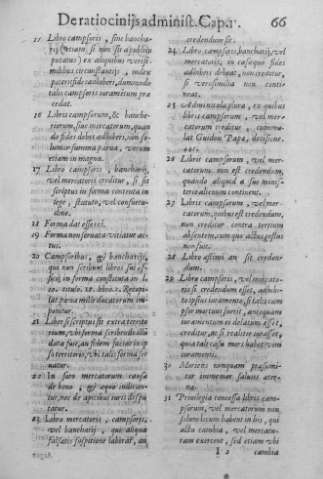 De ratiocinijs administ. Cap. 1. 66
15 Libro campsoris, sine bancha-
rij (etiam si non sit
putatus) ex aliquibus verisi-
milibus circunstantijs, index
poterit fidē
talis campsoris iuramētum præ
cedat.
16 Libris campsorum, & bancha-
riorum, siue mercatorum, quan
do fides debet adhiberi, non so-
lum et summa parua, verum
etiam in magna.
17 Libro campsoris, bancharij,
vel mercatoris creditur, si sit
scriptus in forma contenta in
lege, statuto, vel consuetu-
dine.
18 Forma dat esse rei.
19 Forma non seruata vitiatur ac-
tus.
20 Campsoribus, & bancharijs,
qui non seruant libros sui of-
ficij in forma constituta in l.
10. titulo. 18. libro. 5. Recopi
lat. pœna mille ducatorum im
ponitur.
21 Liber si scriptus sit extra terri-
torium, vbi forma scribēdi illi
data fuit, an fidem faciat in ip
so territorio, vbi talis forma ser
uatur.
22 In foro mercatorum causa
de bono, & æquo indican-
tur, nec de apicibus iuris dispu
tatur.
23 Libro mercatoris, campsoris,
vel bancharij, qui aliqua
falsitatis suspitione laborat, an
credendum sit.
24 Libro, campsoris, bancharij, vel
mercatoris, in casu quo fides
adhiberi debeat, non creditur,
si verisimilia non conti-
neat.
25 Adminicula plura, ex quibus
libris campsoris, vel mer-
catoris creditur, cumu-
lat Guidon Papa, decisione.
26 Libris campsorum, vel mer-
catorum, non est credendum,
quando aliquid à suo minis-
terio alienum continent.
27 Libris campsorum, vel mer-
catorum, potius est credendum,
non creditur contra tertium
absentem, cum quo actus gestus
non fuit.
28 Libro æstimi an sit creden-
dum.
29 Libro campsoris, vel mercato-
ris si credendum esset, adhibi-
to ipsius iuramento, si talis cam
psor mortuus fuerit, antequam
iuramentum ei delatum esset,
creditur, ac si realiter iurasset,
quia tali casu mors habet vim
iuramenti.
30 Moriens nunquam præsumi-
tur immemor salutis æter-
næ.
31 Priuilegia concessa libris camp-
sorum, vel mercatorum non
solum locum habent in his, qui
actu cambia, vel mercatu-
ram exercent, sed etiam vbi
I 2 cambia